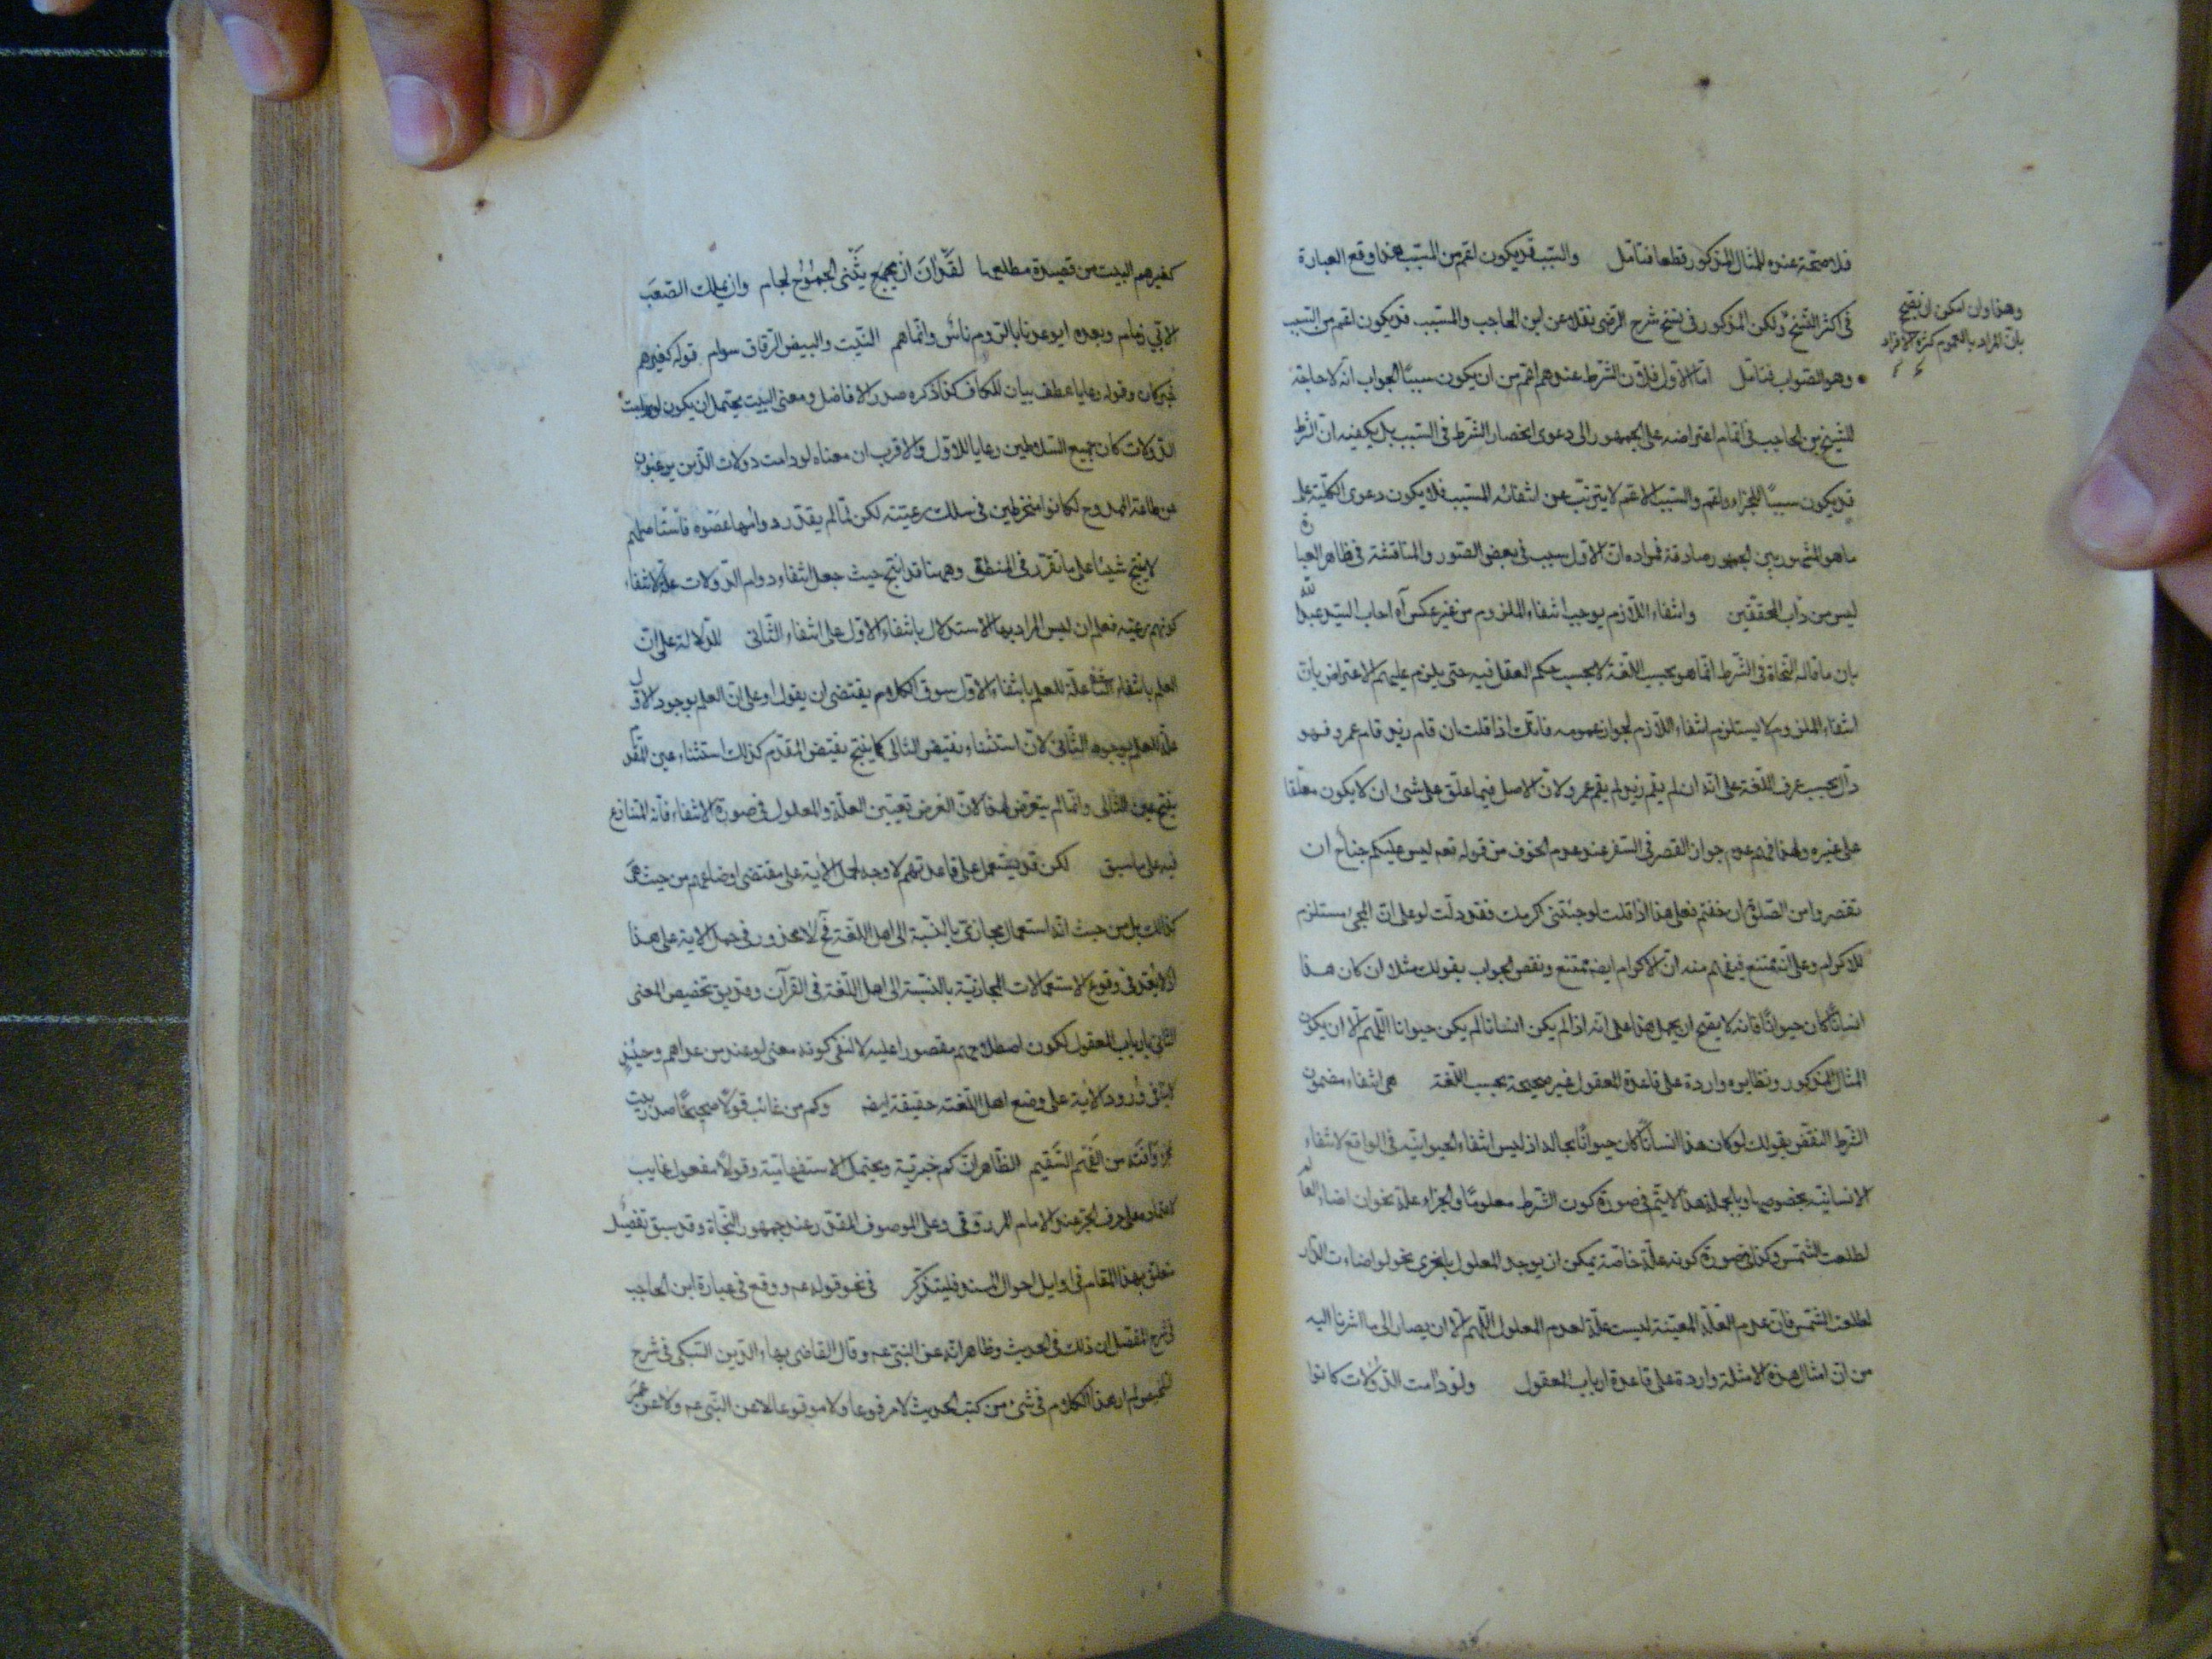 فلا صحة عنده للمثال المذكور قطعا فتامل والسبب قد يكون اعم من المسبب هكذا وقع العبارة
فى اكثر النسخ ولكن المذكور فى نسخ شرح الرضى نقلا عن ابن الحاجب والمسبب قد يكون اعم من السبب
وهو الصواب فتامل اما الاول فلان الشرط عندهم اعم من ان يكون سببا الجواب انه لا حاجة
للشيخ بن الحاجب فى اتمام اعتراضه على الجمهور الى دعوى انحصار الشرط فى السبب بل يكفيه ان الشرط
قد يكون سببا للجزاء واعم والسبب الاعم لا يترتب عن انتفائه المسبب فلا يكون دعوى الكلية على
ما هو المشهور بين الجمهور صادقة فمراده ان الاول سبب فى بعض الصور والمناقشة فى ظاهر العبارة
ليس من داب المحققين وانتفاء اللازم يوجب انتفاء الملزوم من غير عكس آه اجاب السيد عبد الله
بان ما قاله النحاة فى الشرط انما هو بحسب اللغة لا بحسب حكم العقل فيه حتى يلزم عليهم الاعتراض بان
انتفاء الملزوم لا يستلزم انتفاء اللازم لجواز عمومه فانك اذا قلت ان قام زيد قام عمرو فهو
دال بحسب عرف اللغة على انه ان لم يقم زيد لم يقم عمرو ولان الاصل فيما علق على شئ ان لا يكون معلقا
على غيره ولهذا فهم عدم جواز القصر فى السفر عند عدم الخوف من قوله تعه ليس عليكم جناح ان
تقصروا من الصلوة ان خفتم فعلى هذا اذا قلت لو جئتنى اكرمتك فقد دلت لو على ان المجئ مستلزم
للاكرام وعلى انه ممتنع فيفهم منه ان الاكرام ايضا ممتنع ونقض الجواب بقولك مثلا ان كان هذا
انسانا كان حيوانا فانه لا يصح ان يحمل هذا على انه اذا لم يكن انسانا لم يكن حيوانا اللهم الا ان يكون
المثال المذكور ونظايره واردة على قاعدة المعقول غير صحيحة بحسب اللغة هى انتفاء مضمون
الشرط النقض بقولك لو كان هذا انسانا كان حيوانا بحاله اذ ليس انتفاء الحيوانية فى الواقع لانتفاء
الانسانية بخصوصها وبالجملة هذا لا يتم فى صورة كون الشرط معلولا والجزاء علة نحو ان اضاء العالم
لطلعت الشمس وكذا فى صورة كونه علة خاصة يمكن ان يوجد المعلول باخرى نحو لو اضاءت الدار
لطلعت الشمس فان عدم العلة المعينة ليست علة لعدم المعلول اللهم الا ان يصار الى ما اشرنا اليه
من ان امثال هذه الامثلة واردة على قاعدة ارباب المعقول ولو دامت الدولات كانوا
وهذا وان امكن ان يصح
بان المراد بالعموم كثرة الافراد
كغيرهم البيت من قصيدة مطلعها لقد آن ان يثنى الجموح لجام وان يملك الصعب
الابي زمام وبعده ايوعدنا بالروم ناس وانما هم النبت والبيض الرقاق سوام قوله كغيرهم
خبر كان وقوله رعايا عطف بيان للكاف كذا ذكره صدر الافاضل ومعنى البيت يحتمل ان يكون لو دامت
الدولات كان جميع السلاطين رعايا للاول والاقرب ان معناه لو دامت دولات الذين يرغبون
عن طاعة الممدوح لكانوا منخرطين فى سلك رعيته لكن لما لم يقدر دوامها عصوه فاستاصلهم
لا ينتج شيئا على ما تقرر فى المنطق وههنا قد انتج حيث جعل انتفاء دوام الدولات علة لانتفاء
كونهم رعيته فعلم ان ليس المراد بها الاستدلال بانتفاء الاول على انتفاء الثانى للدلالة على ان
العلم بانتفاء الثانى علة للعلم بانتفاء الاول سوق الكلام يقتضى ان يقول او على ان العلم بوجود الاول
علة للعلم بوجود الثانى لان استثناء نقيض التالى كما ينتج نقيض المقدم كذلك استثناء عين المقدم
ينتج عين التالى وانما لم يتعرض لهذا لان الغرض تعيين العلة والمعلول فى صورة الانتفاء فانه المتنازع
فيه على ما سبق لكن قد يستعمل على قاعدتهم لا وجه لحمل الآية على مقتضى اوضاعهم من حيث هى
كذلك بل من حيث انه استعمال مجازى بالنسبة الى اهل اللغة فح لا محذور فى حمل الآية على هذا
اذ لا بعد فى وقوع الاستعمالات المجازية بالنسبة الى اهل اللغة فى القرآن وقد يق تخصيص المعنى
الثانى بارباب المعقول لكون اصطلاحهم مقصورا عليه لا لنفى كونه معنى لو عند من عداهم وحينئذ
ورود الآية على وضع اهل اللغة حقيقة ايضا وكم من عائب قولا صحيحا صدر بيت
وآفته من الفهم السقيم الظاهر ان كم خبرية ويحتمل الاستفهامية وقولا مفعول عايب
لاعتماده على حرف الجر عند الامام المرزوقى وعلى الموصوف المقدر عند جمهور النحاة وقد سبق تفصيل
متعلق بهذا المقام فى اوايل احوال المسند فليتذكر فى نحو قوله عم ووقع فى عبارة ابن الحاجب
فى شرح المفصل ان ذلك فى الحديث وظاهر انه عن النبى عم وقال القاضى بهاء الدين السبكى فى شرح
التلخيص لم ار هذا الكلام فى شئ من كتب الحديث لا مرفوعا ولا موقوفا لا عن النبى عم ولا عن عمر